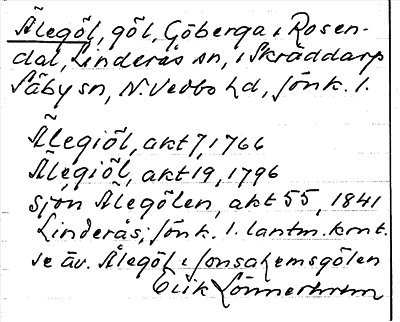 Älegöl, göl, Göberga o Rosen-
dal, Linderås sn, i Skräddarp
Säby sn, N. Vedbo hd, Jönk. l.
Älegiöl, akt 7, 1766
Älegiöl, akt 19, 1796
sjön Älegölen, akt 55, 1841
Linderås, Jönk. l. lantm. kont.
se äv. Ålegöl i Jonsahemsgölen
Erik Lönnerholm